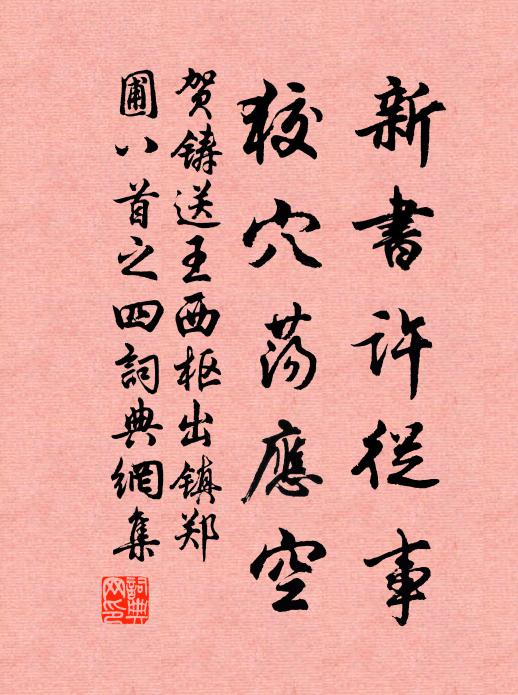 新書許從事
狡穴蕩應空
贺鑄送王西枢出镇郑
圃八首之四詞典網集
詞典网印